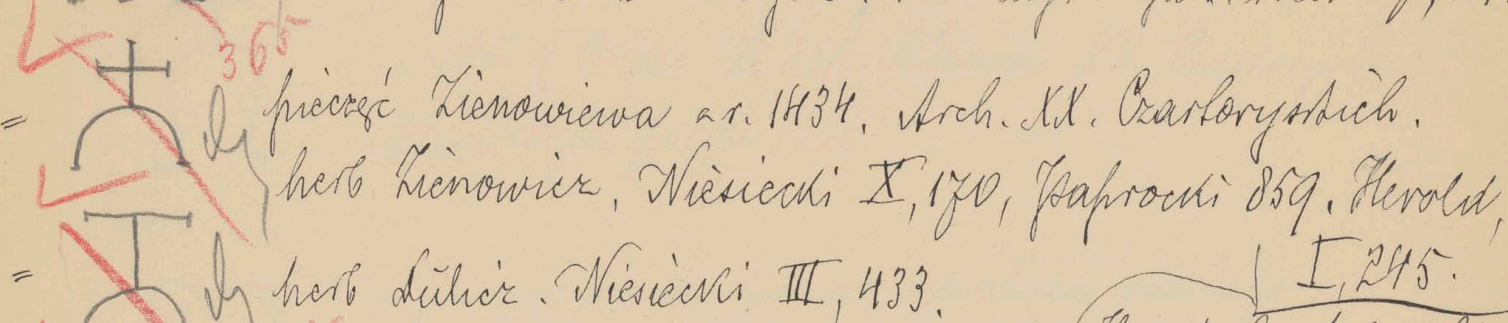 365
pieczęć Zienowiewa a r. 1434. Arch. XX. Czartoryskich.
herb Zienowicz, Niesiecki X, 170, Paprocki 859. Herold,
I, 245.
herb Łulicz. Niesiecki III, 433.